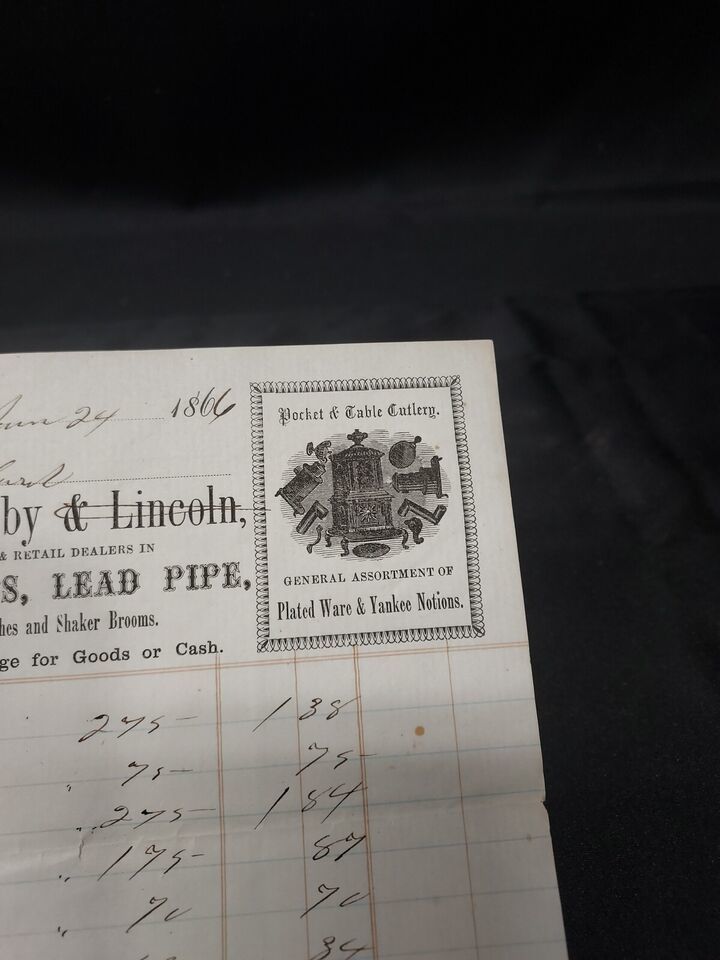 24 1866
by & Lincoln,
& RETAIL DEALERS IN
S, LEAD PIPE,
hes and Shaker Brooms.
ge for Goods or Cash.
Pocket & Table Cutlery.
GENERAL ASSORTMENT OF
Plated Ware & Yankee Notions.
275 1 38
" 75 75
" 275 1 84
" 175 87
" 70 70
34